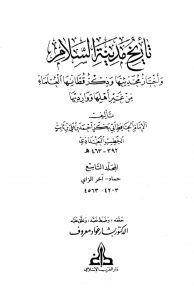 تاريخ مدينة السلام
وأخبار محدثيها وذكر قطانها العلماء
من غير أهلها ووارديها
تأليف
الإمام الحافظ أبي بكر أحمد بن علي بن ثابت
الخطيب البغدادي
٣٩٢ - ٤٦٣ هـ
المجلد التاسع
حماد - آخر الزاي
٤٢٠٣ - ٤٥٦٣
حققه، وضبط نصه، وعلق عليه
الدكتور بشار عواد معروف
دار الغرب الإسلامي